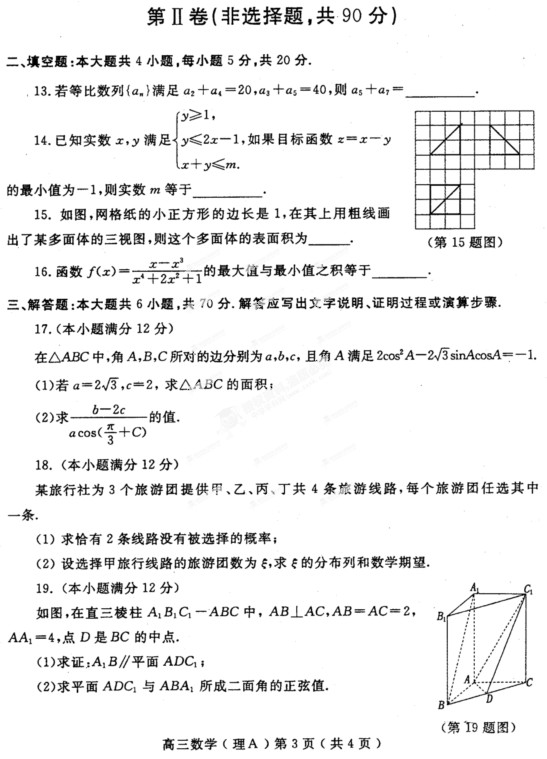 第Ⅱ卷(非选择题,共 90 分)
二、填空题:本大题共 4 小题,每小题 5 分,共 20 分.
13.若等比数列{aₙ}满足 a₂+a₄=20,a₃+a₅=40,则 a₅+a₇=________.
y≥1,
14.已知实数 x,y 满足{y≤2x-1,如果目标函数 z=x-y
x+y≤m.
的最小值为-1,则实数 m 等于________.
15. 如图,网格纸的小正方形的边长是 1,在其上用粗线画
出了某多面体的三视图,则这个多面体的表面积为______.
(第 15 题图)
16.函数 f(x)=(x-x³)/(x⁴+2x²+1)的最大值与最小值之积等于________.
三、解答题:本大题共 6 小题,共 70 分.解答应写出文字说明、证明过程或演算步骤.
17.(本小题满分 12 分)
在△ABC 中,角 A,B,C 所对的边分别为 a,b,c,且角 A 满足 2cos²A-2√3sinAcosA=-1.
(1)若 a=2√3,c=2,求△ABC 的面积;
(2)求(b-2c)/(acos(π/3+C))的值.
18.(本小题满分 12 分)
某旅行社为 3 个旅游团提供甲、乙、丙、丁共 4 条旅游线路,每个旅游团任选其中
一条.
(1) 求恰有 2 条线路没有被选择的概率;
(2) 设选择甲旅行线路的旅游团数为 ξ,求 ξ 的分布列和数学期望.
19.(本小题满分 12 分)
如图,在直三棱柱 A₁B₁C₁-ABC 中,AB⊥AC,AB=AC=2,
AA₁=4,点 D 是 BC 的中点.
(1)求证:A₁B∥平面 ADC₁;
(2)求平面 ADC₁ 与 ABA₁ 所成二面角的正弦值.
A₁
C₁
B₁
A
C
D
B
(第 19 题图)
高三数学(理A)第 3 页(共 4 页)